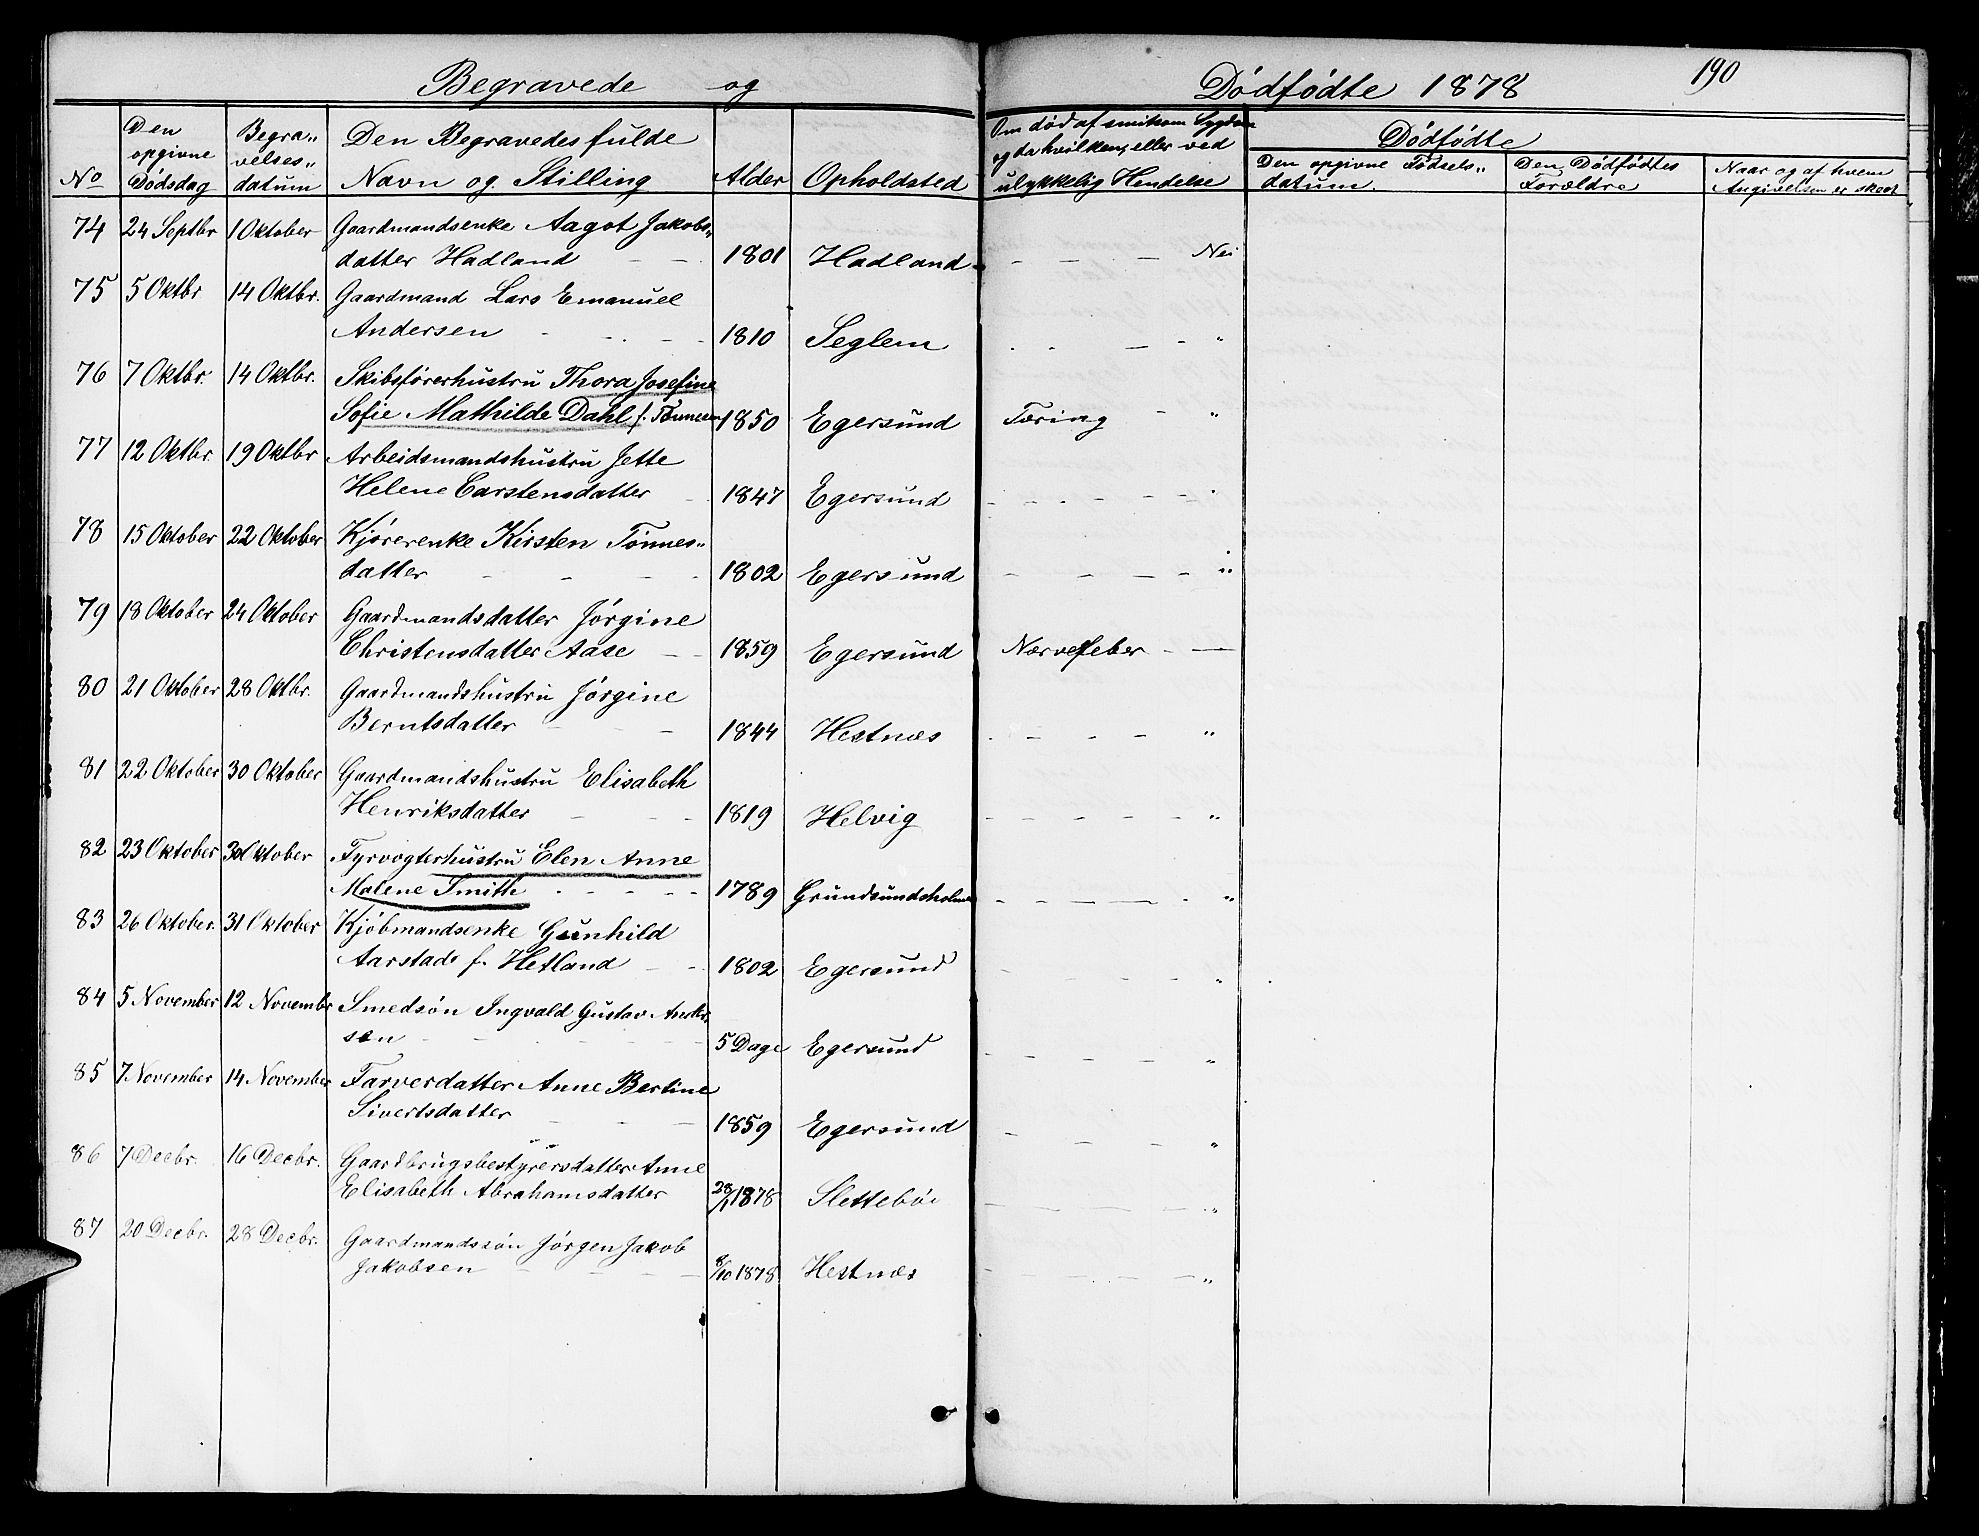 Begravede og Dödfödte 1878 190
No Den opgivne Dödsdag Begra„velses„datum Den Begravedes fulde Navn og Stilling Alder Opholdsted Om död af smitsom Sygdom og da hvilken, eller ved ulykkelig Hendelse Dödfödte
Den opgivne Födsels„datum. Den Dödfödtes Forældre Naar og af hvem Angivelsen er skeet
74 24 Septbr 1 Oktober Gaardmandsenke Aagot Jakobs„
datter Hadland 1801 Hadland Nei
75 5 Oktbr 14 Oktbr. Gaardmand Lars Emanuel
Andersen 1810 Seglem "
76 7 Oktbr. 14 Oktbr. Skibsförerhustru Thora Josefine
Sofie Mathilde Dahl f. Tönnesen 1850 Egersund Tæring "
77 12 Oktbr. 19 Oktbr Arbeidsmandshustru Jette
Helene Carstensdatter 1847 Egersund "
78 15 Oktober 22 Oktober Kjörerenke Kirsten Tönnes„
datter 1802 Egersund "
79 18 Oktober 24 Oktober Gaardmandsdatter Jörgine
Christensdatter Aase 1859 Egersund Nærvefeber
80 21 Oktober 28 Oktbr. Gaardmandshustru Jörgine
Berntsdatter 1844 Hestnæs "
81 22 Oktober 30 Oktober Gaardmandshustru Elisabeth
Henriksdatter 1819 Helvig "
82 23 Oktober 30 Oktober Fyrvogterhustru Elen Anne
Malene Smith 1789 Grundsundsholmen "
83 26 Oktober. 31 Oktober Kjöbmandsenke Gunhild
Aarstad f. Hetland 1802 Egersund "
84 5 November 12 November Smedsön Ingvald Gustav Ander„
sen 5 Dage Egersund "
85 7 November 14 November Farverdatter Anne Bertine
Sivertsdatter 1859 Egersund "
86 7 Decbr. 16 Decbr. Gaardbrugsbestyrersdatter Anne
Elisabeth Abrahamsdatter 28/1 1878 Slettebö "
87 20 Decbr. 28 Decbr. Gaardmandssön Jörgen Jakob
Jakobsen 8/10 1878 Hestnæs "